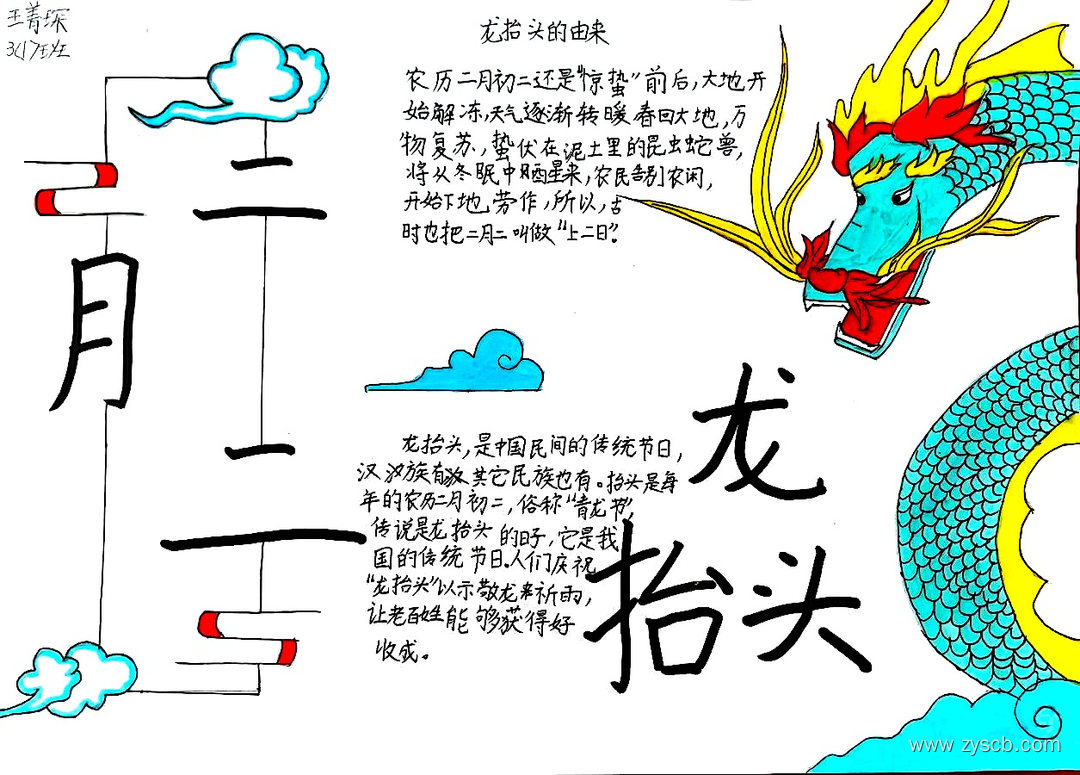 王菁琛
3(17)班
龙抬头的由来
农历二月初二还是"惊蛰"前后,大地开
始解冻,天气逐渐转暖,春回大地,万
物复苏,蛰伏在泥土里的昆虫蛇兽,
将从冬眠中醒来,农民告别农闲,
开始下地劳作,所以,古
时也把二月二叫做"上二日"。
二月二
龙抬头
龙抬头,是中国民间的传统节日,
汉族有,其它民族也有。抬头是每
年的农历二月初二,俗称"青龙节",
传说是龙抬头的日子,它是我
国的传统节日.人们庆祝
"龙抬头"以示敬龙来祈雨,
让老百姓能够获得好
收成。
www.zyscb.com